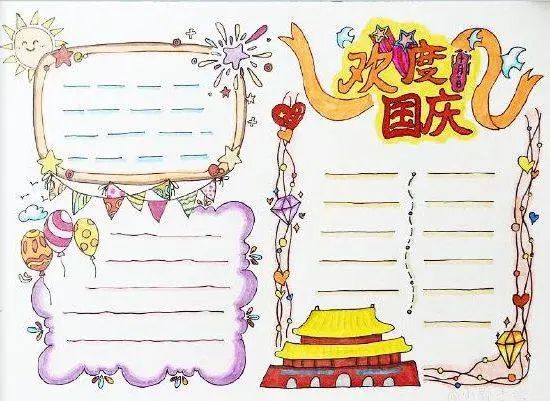 欢度
国庆